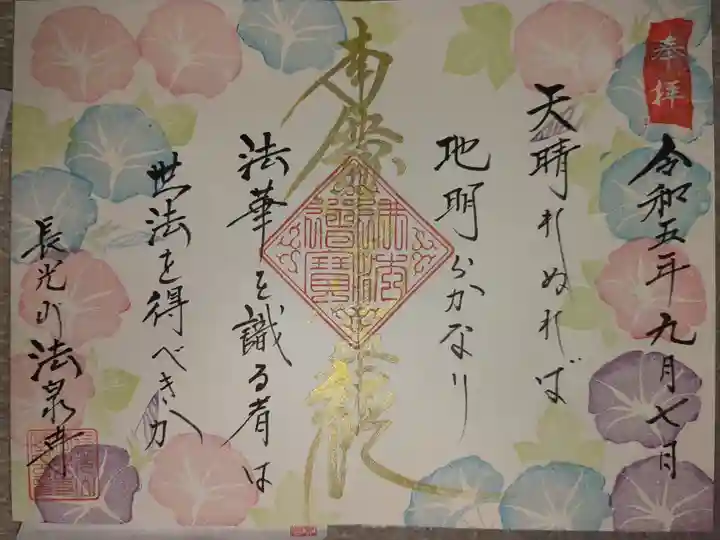 奉拝
令和五年九月七日
天晴れぬれば
地明らかなり
法華を識る者は
世法を得べきか
長光山 法泉寺
佛法僧寳